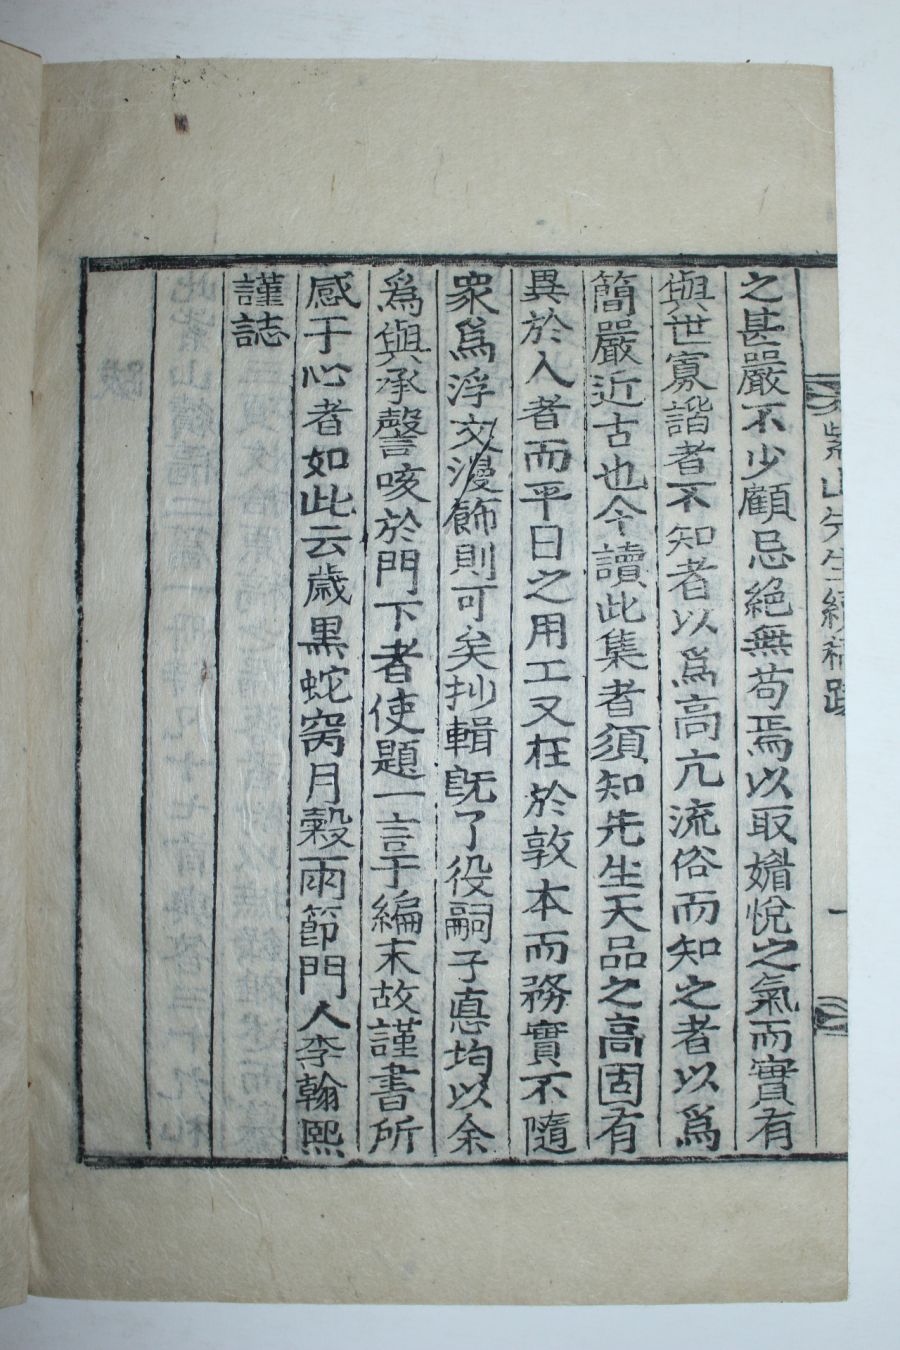 紫山先生續稿跋
一
之甚嚴不少顧忌絕無苟焉以取媚悅之氣而實有
與世寡諧者不知者以爲高亢流俗而知之者以爲
簡嚴近古也今讀此集者須知先生天品之高固有
異於人者而平日之用工又在於敦本而務實不隨
衆爲浮文漫飾則可矣抄輯旣了役嗣子悳均以余
爲與承謦咳於門下者使題一言于編末故謹書所
感于心者如此云歲黑蛇窉月穀雨節門人李翰熙
謹誌